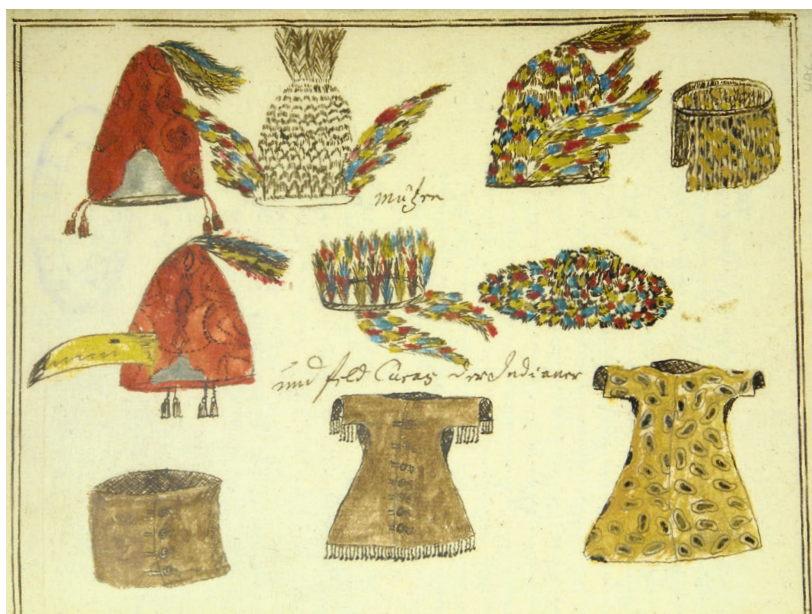 Mützen
und feld Curas der Indianer